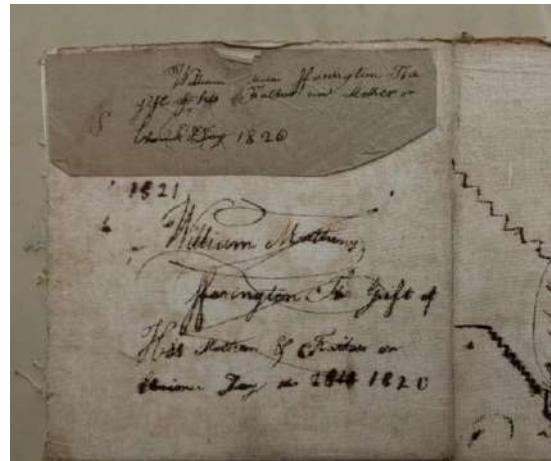 William ffarington The
gift of his Father and Mother on
Day 1820
1821
William Mathew
ffarington The Gift of
His Mother & Father on
Day 1820